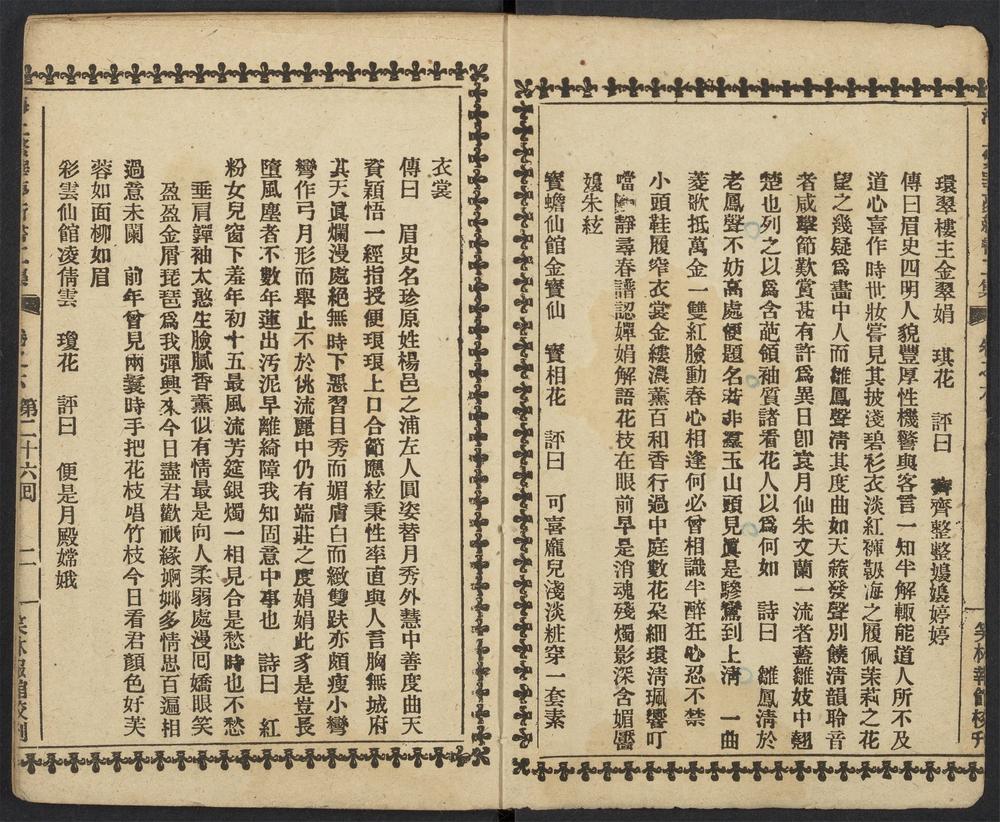 環翠樓主金翠娟　琪花　評曰　齊齊整整嬡嬡婷婷
傳曰眉史四明人貌豐厚性機警與客言一知半解輒能道人所不及
道心喜作時世妝嘗見其披淺碧衫衣淡紅褲靸海之履佩茉莉之花
望之幾疑爲畵中人而雛鳳聲淸其度曲如天籟發聲別饒淸韻聆音
者咸擊節歎賞甚有許爲異日卽哀月仙朱文蘭一流者蓋雛妓中翹
楚也列之以爲含葩領袖質諸看花人以爲何如　詩曰　雛鳳淸於
老鳳聲不妨高處便題名若非羣玉山頭見眞是驂鸞到上淸　一曲
菱歌抵萬金一雙紅臉動春心相逢何必曾相識半醉狂心忍不禁
小頭鞋履窄衣裳金縷濃薰百和香行過中庭數花朶細環淸珮響叮
噹　靜尋春譜認嬋娟解語花枝在眼前早是消魂殘燭影深含媚靨
嬡朱絃
寳蟾仙館金寳仙　寳相花　評曰　可喜龐兒淺淡粧穿一套素
衣裳
傳曰　眉史名珍原姓楊邑之浦左人圓姿替月秀外慧中善度曲天
資穎悟一經指授便琅琅上口合節應絃秉性率直與人言胸無城府
其天眞爛漫處絕無時下惡習目秀而媚膚白而緻雙趺亦頗瘦小彎
彎作弓月形而舉止不於佻流麗中仍有端莊之度娟娟此豸是豈長
墮風塵者不數年蓮出汚泥早離綺障我知固意中事也　詩曰　紅
粉女兒窗下羞年初十五最風流芳筵銀燭一相見合是愁時也不愁
垂肩嚲袖太憨生臉膩香薰似有情最是向人柔弱處漫囘嬌眼笑
盈盈金屑琵琶爲我彈興來今日盡君歡祇緣婀娜多情思百遍相
過意未闌　前年曾見兩鬟時手把花枝唱竹枝今日看君顏色好芙
蓉如面柳如眉
彩雲仙館凌倩雲　瓊花　評曰　便是月殿嫦娥
第二十六回　二